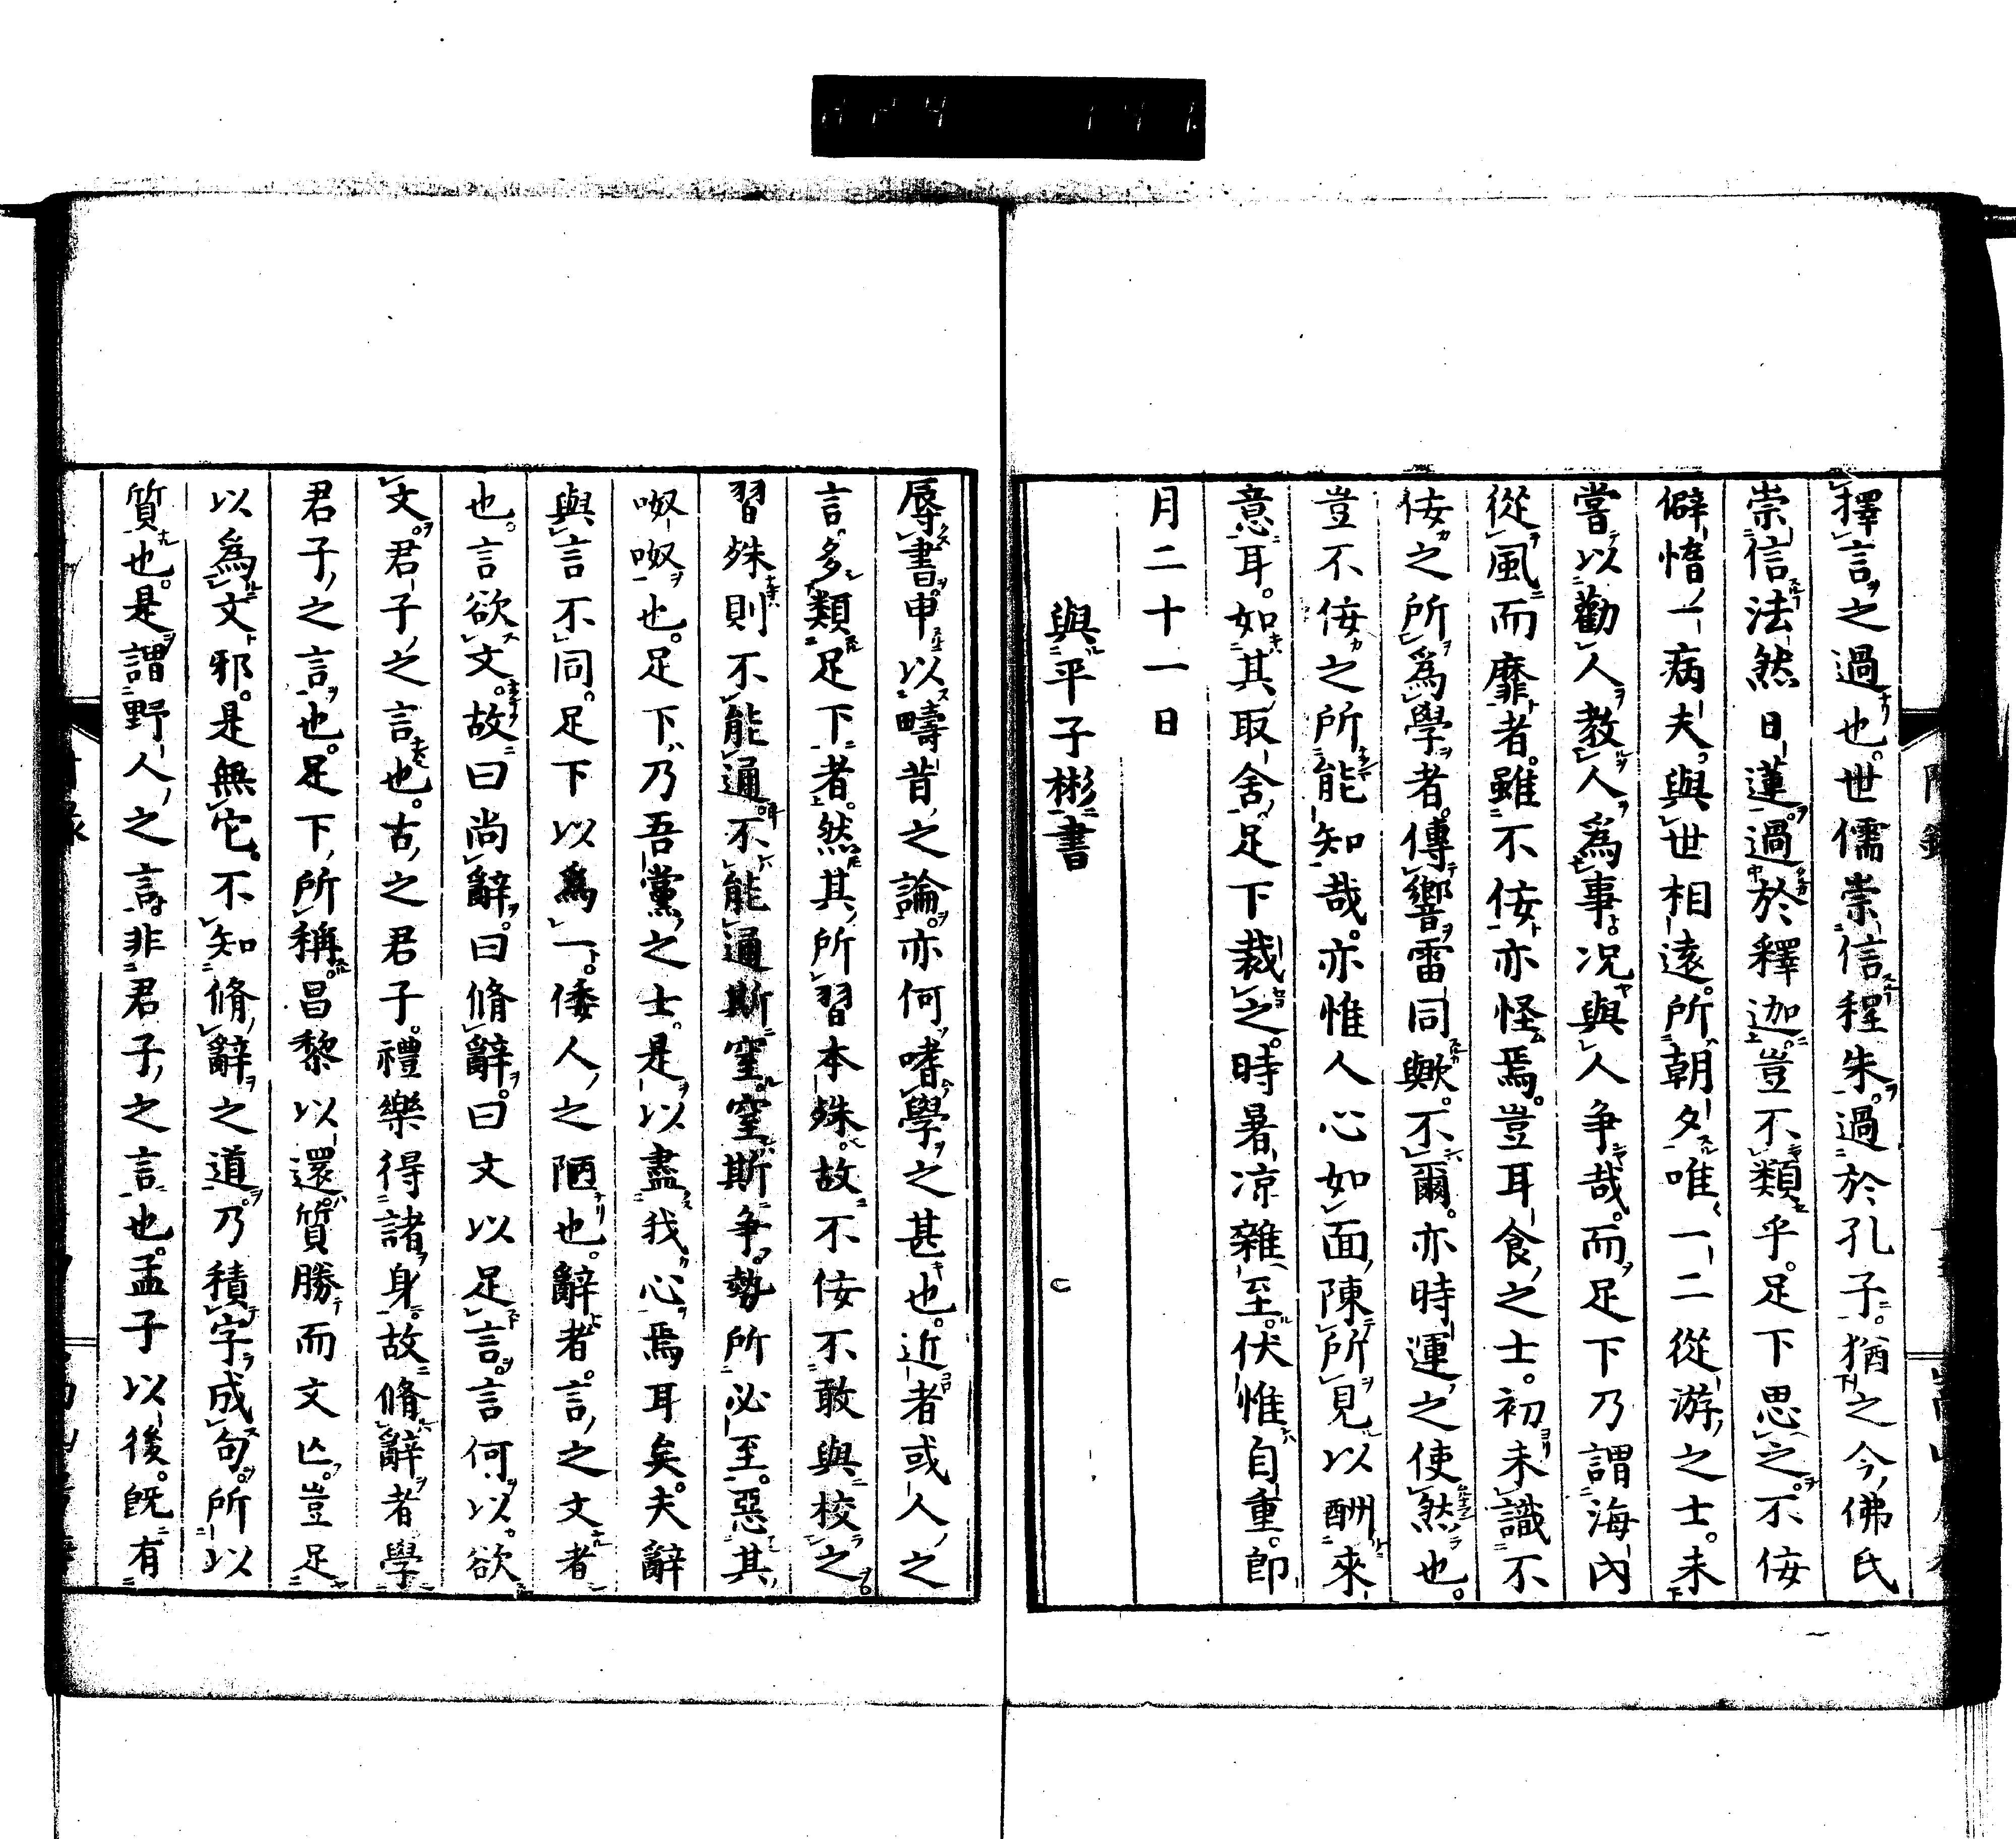 擇言之過也。世儒崇信程朱。過於孔子。猶之今佛氏
崇信法然日蓮。過於釋迦。豈不類乎。足下思之。不佞
僻惰一病夫。與世相遠。所朝夕唯一二從游之士。未
嘗以勸人教人爲事。況與人争哉。而足下乃謂海內
從風而靡者。雖不佞亦怪焉。豈耳食之士。初未識不
佞之所爲學者。傳響雷同歟。不爾。亦時運之使然也。
豈不佞之所能知哉。亦惟人心如面、陳所見以酬來
意耳。如其取舍。足下裁之。時暑凉雜至。伏惟自重。卽
月二十一日
與平子彬書
辱書申以疇昔之論。亦何嗜學之甚也。近者或人之
言。多類足下者。然其所習本殊。故不佞不敢與校之
習殊則不能通。不能通斯窒。窒斯争。勢所必至。惡其
呶呶也。足下乃吾黨之士。是以盡我心焉耳矣。夫辭
與言不同。足下以爲一。倭人之陋也。辭者。言之文者
也。言欲文。故曰尚辭。曰脩辭。曰文以足言。言何以欲
文。君子之言也。古之君子。禮樂得諸身。故脩辭者學
君子之言也。足下所稱。昌黎以還。質勝而文亡。豈足
以爲文邪。是無它。不知脩辭之道。乃積字成句。所以
質也。是謂野人之言。非君子之言也。孟子以後。旣有